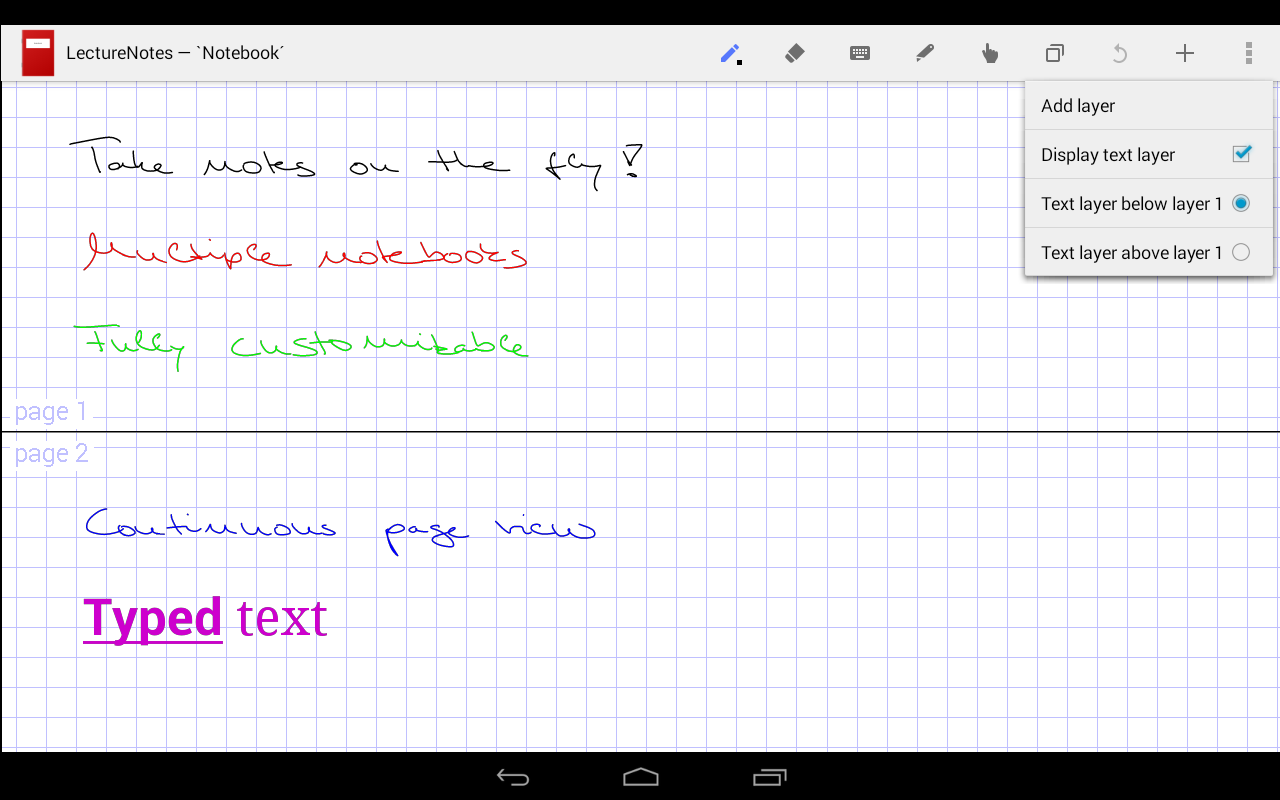 LectureNotes — `Notebook´
Add layer
Display text layer
Text layer below layer 1
Text layer above layer 1
Take notes on the fly!
Multiple notebooks
Fully customizable
page 1
page 2
Continuous page view
Typed text